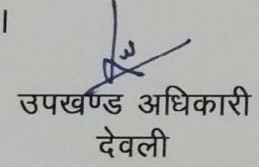 ।
उपखण्ड अधिकारी
देवली